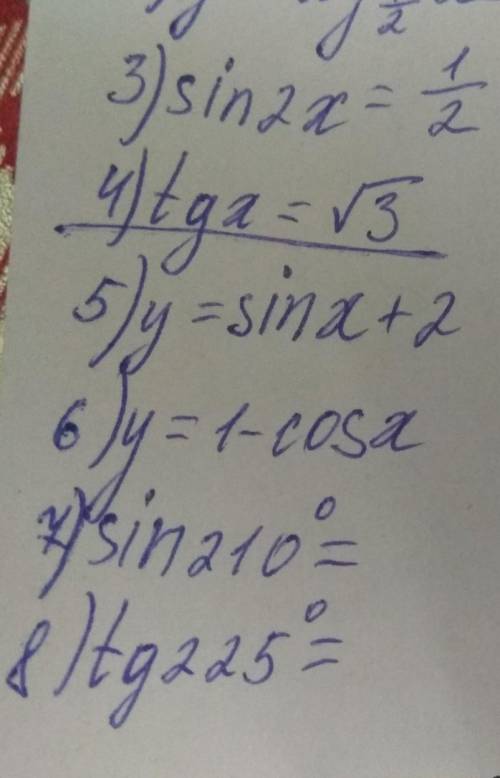 3) sin2x = 1/2
4) tgx = √3
5) y = sinx + 2
6) y = 1 - cosx
7) sin210° =
8) tg225° =